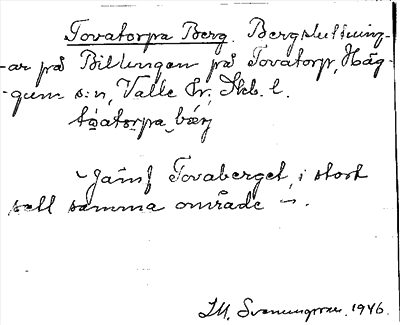 Tovatorpa Berg. Bergsluttning-
-ar på Billingen på Tovatorp, Häg-
-gum s:n, Valle hr, Skb. l.
tóatorpa bærj
Jämf Tovaberget, i stort
sett samma område –.
M. Svenungsson. 1946.